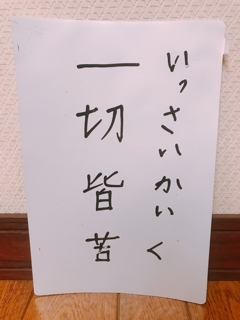 いっさいかいく
一切皆苦